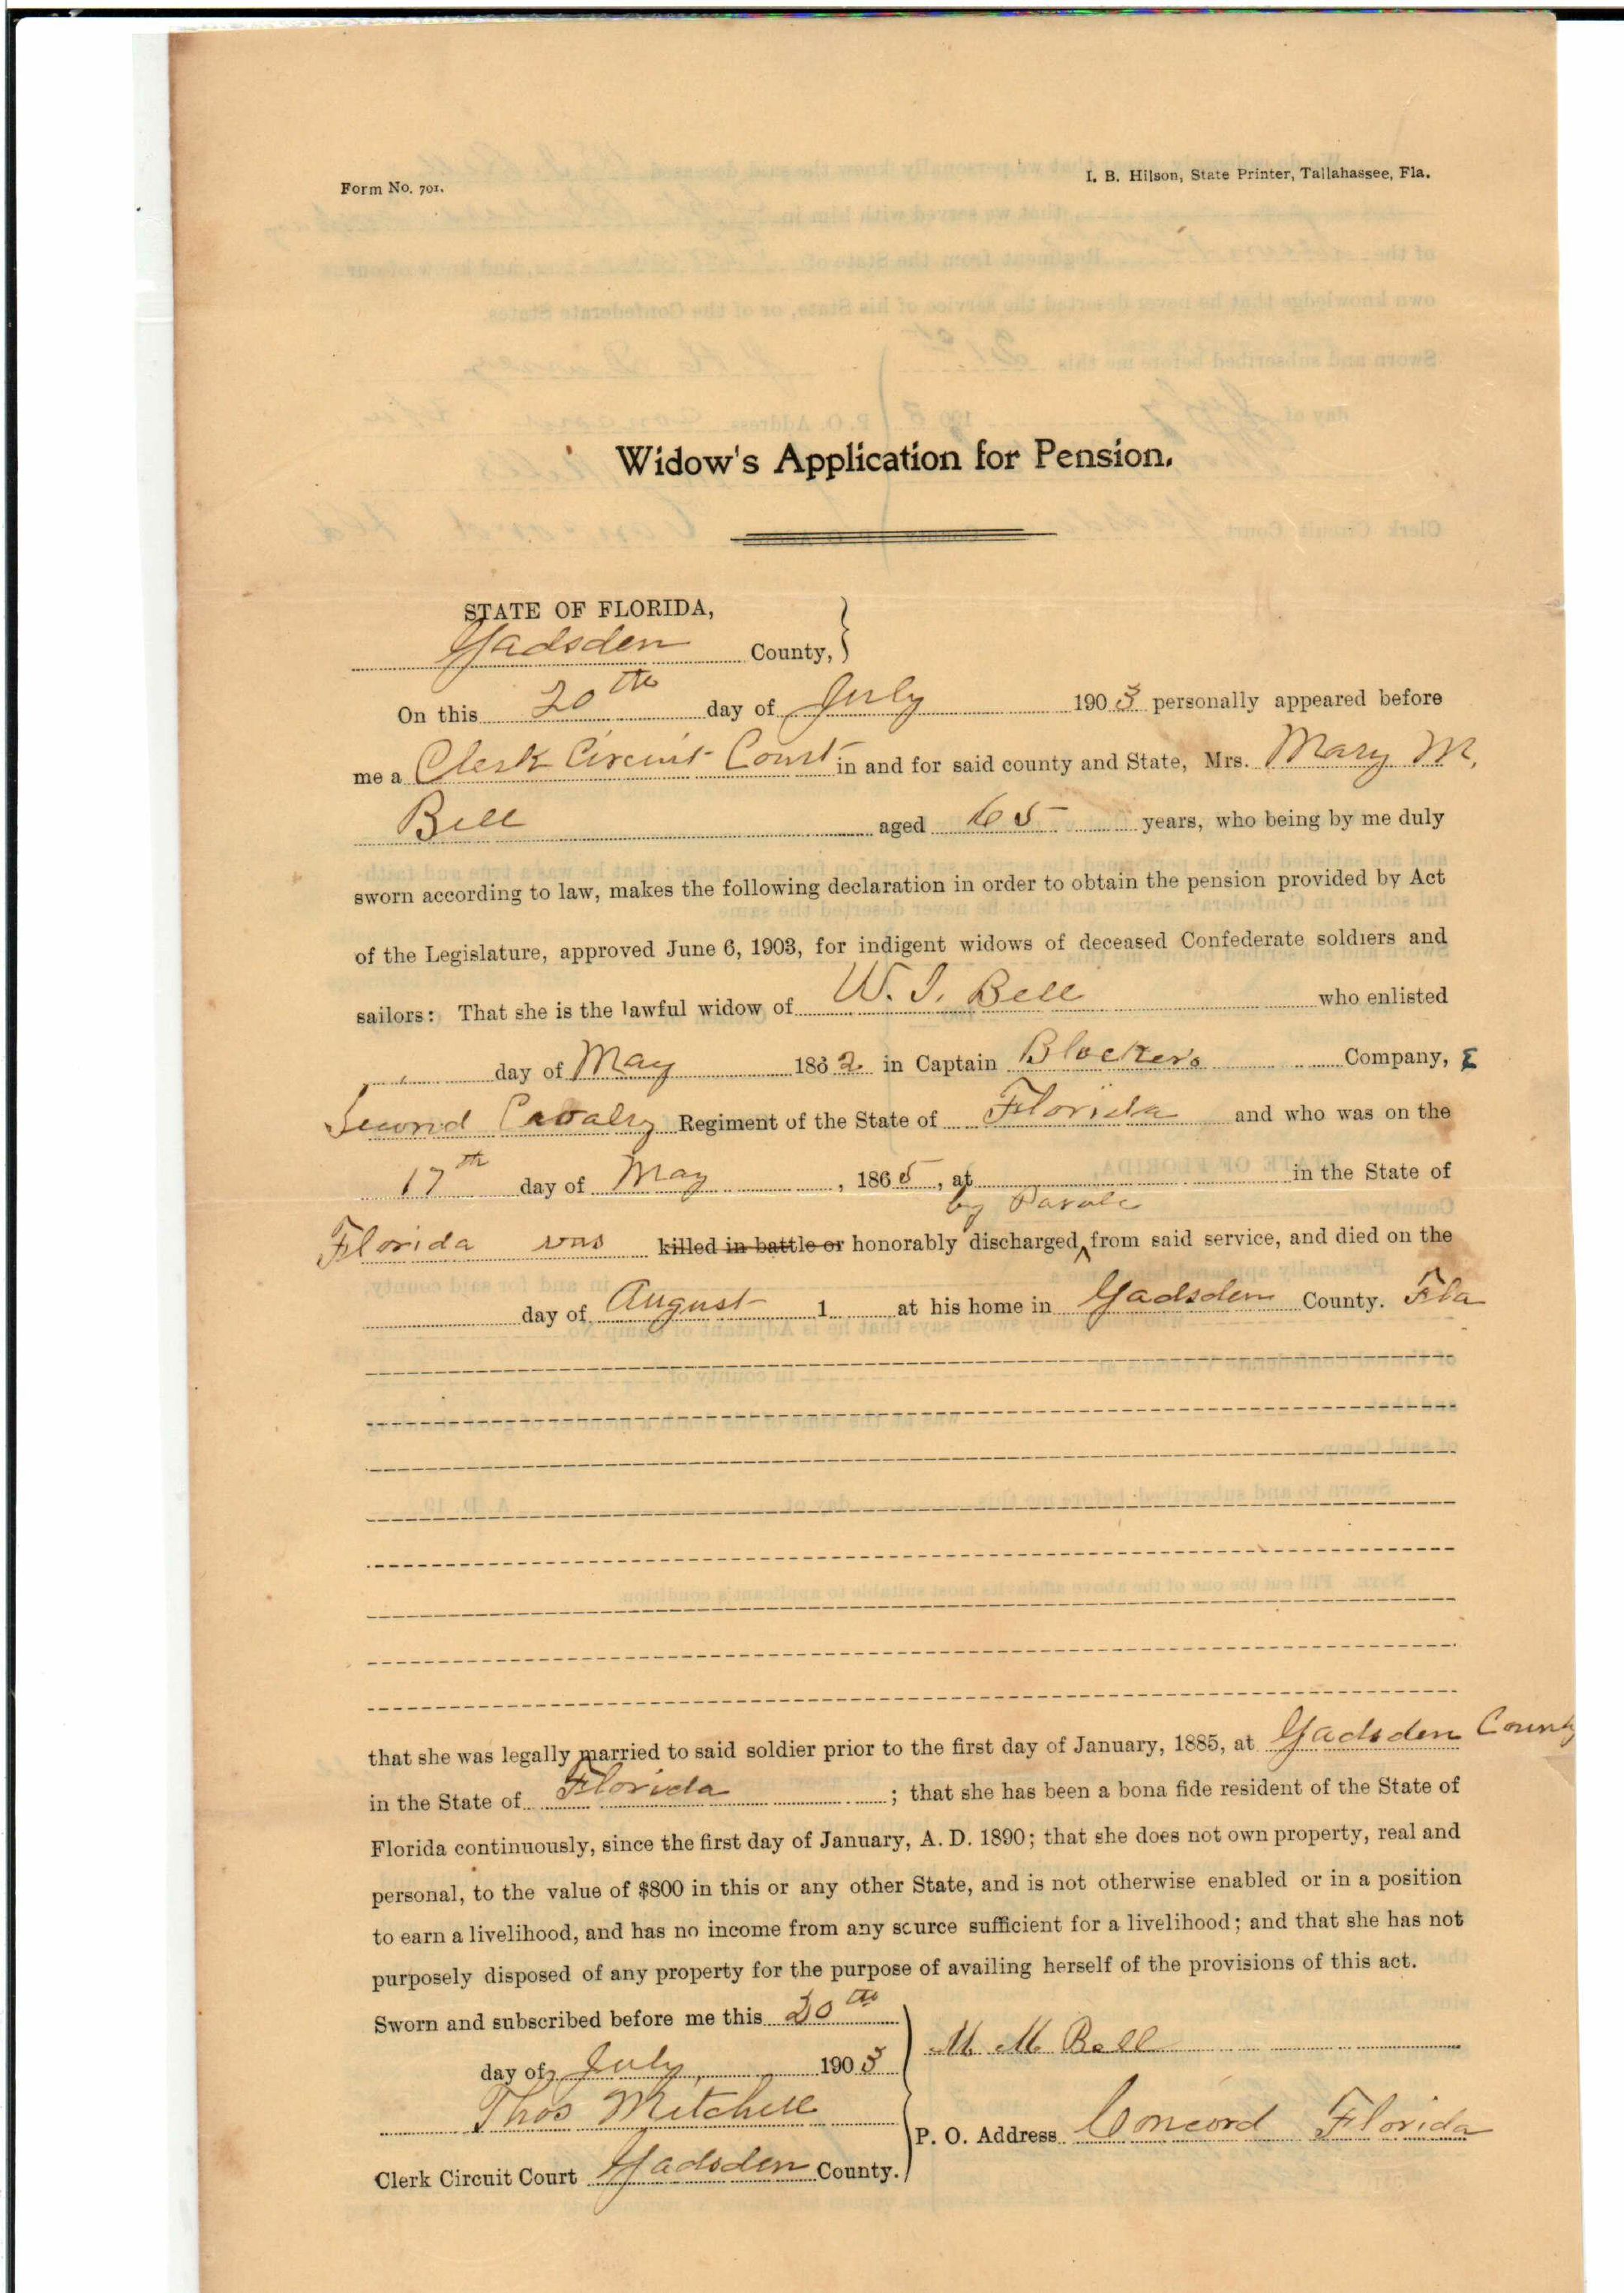 Form No. 701.
I. B. Hilson, State Printer, Tallahassee, Fla.
Widow's Application for Pension.
STATE OF FLORIDA,
Gadsden County,
On this 20th day of July 1903 personally appeared before
me a Clerk Circuit Court in and for said county and State, Mrs. Mary M.
Bell aged 65 years, who being by me duly
sworn according to law, makes the following declaration in order to obtain the pension provided by Act
of the Legislature, approved June 6, 1903, for indigent widows of deceased Confederate soldiers and
sailors: That she is the lawful widow of W. J. Bell who enlisted
day of May 1862 in Captain Blockers Company, E
Second Cavalry Regiment of the State of Florida and who was on the
17th day of May, 1865, at in the State of
by Parole
Florida was killed in battle or honorably discharged ^ from said service, and died on the
day of August 1 at his home in Gadsden County. Fla
that she was legally married to said soldier prior to the first day of January, 1885, at Gadsden County
in the State of Florida; that she has been a bona fide resident of the State of
Florida continuously, since the first day of January, A. D. 1890; that she does not own property, real and
personal, to the value of $800 in this or any other State, and is not otherwise enabled or in a position
to earn a livelihood, and has no income from any scurce sufficient for a livelihood; and that she has not
purposely disposed of any property for the purpose of availing herself of the provisions of this act.
Sworn and subscribed before me this 20th
day of July, 1903
M M Bell
Thos Mitchell
P. O. Address Concord Florida
Clerk Circuit Court Gadsden County.